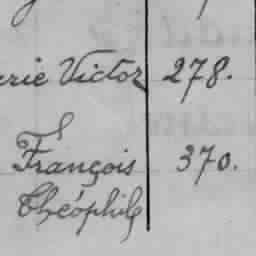 erie Victor 278.
François 370.
Théophile